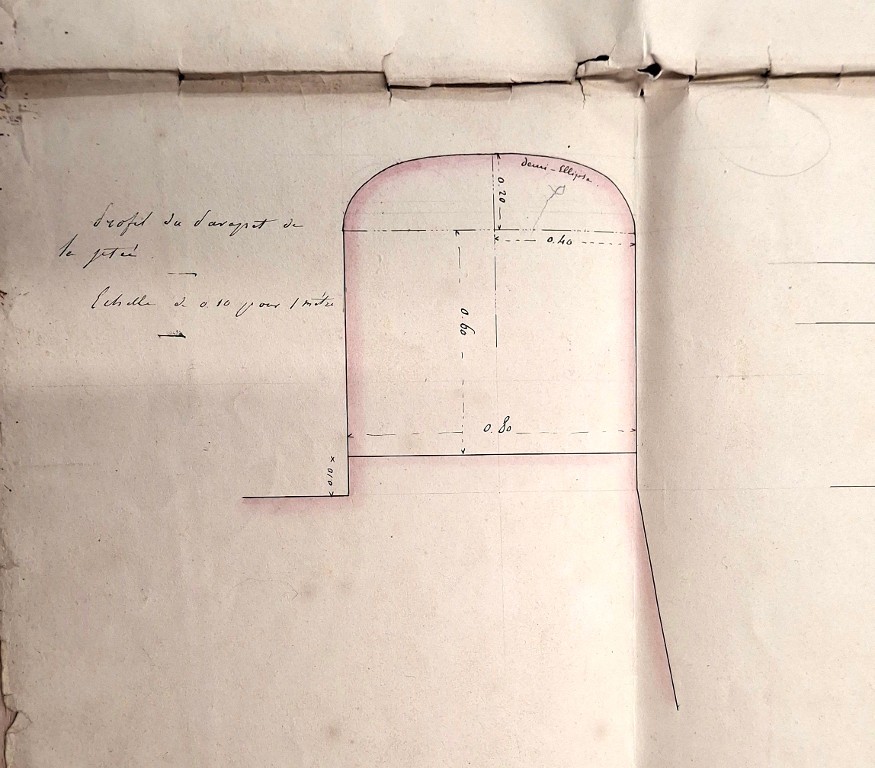 Profil du Parapet de
la jetée
Echelle de 0.10 pour 1 mètre
demi-Ellipse
0.20
0.40
0.60
0.80
0.10